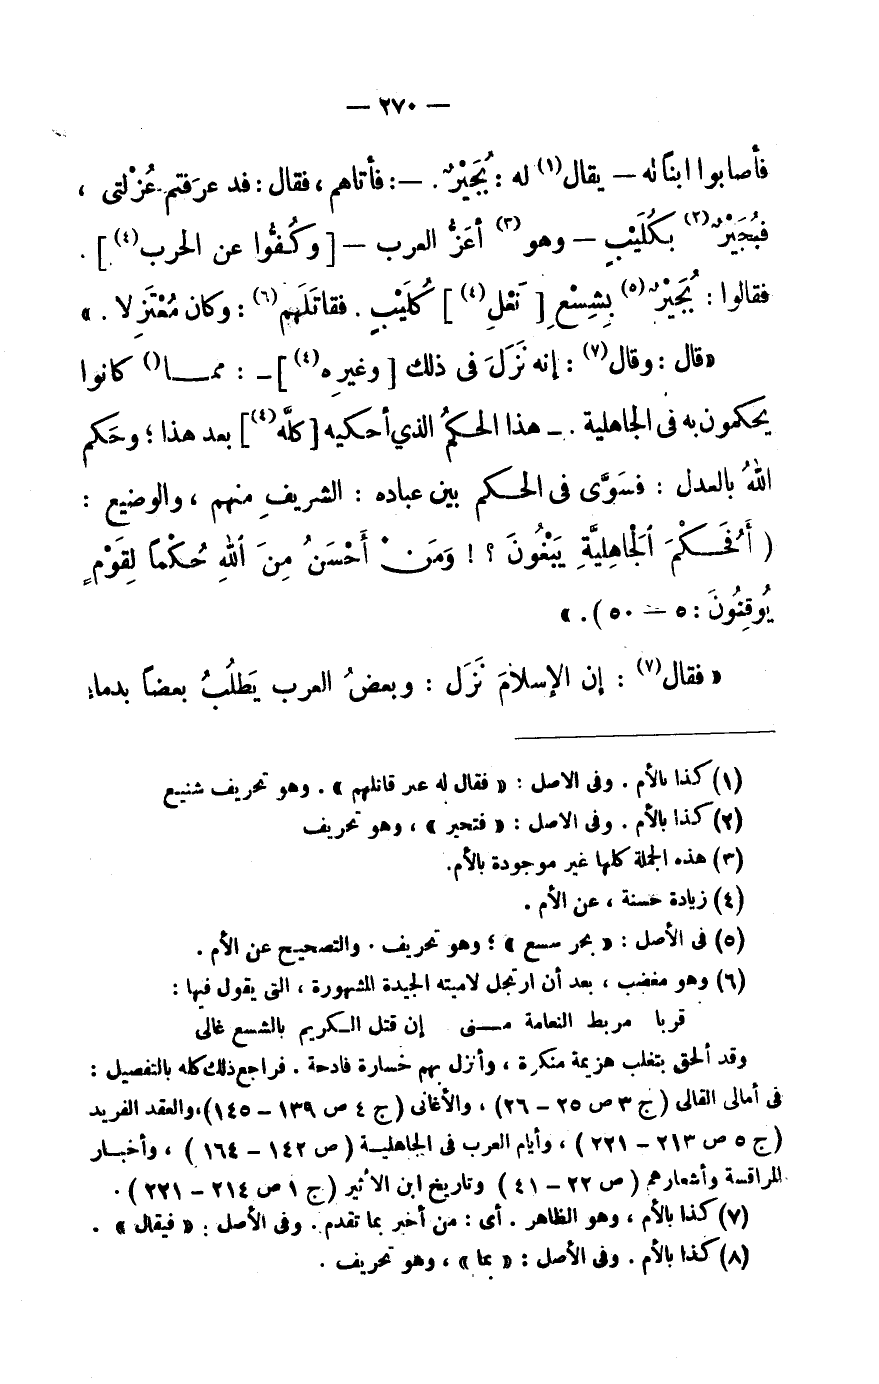 — ٢٧٠ —
فأصابوا ابنًا له — يقال(١) له : بُجَيْرٌ . — : فأتاهم ، فقال : قد عرَفتم عُزْلتى ،
فبُجَيْرٌ(٢) بكُلَيْبٍ — وهو(٣) أعَزُّ العرب — [ وكُفُّوا عن الحرب(٤) ] .
فقالوا : بُجَيْرٌ(٥) بِشِسْعِ [ نَعْلِ(٤) ] كُلَيْبٍ . فقاتَلَهم(٦) : وكان مُعْتَزِلا . »
« قال : وقال(٧) : إنه نَزَلَ فى ذلك [ وغيرِه(٤) ] — : ممـا() كانوا
يحكمون به فى الجاهلية . — هذا الحكمُ الذي أحكيه [ كلَّه(٤) ] بعد هذا ؛ وحَكم
اللهُ بالعدل : فسَوَّى فى الحـكم بين عباده : الشريفِ منهم ، والوضيع :
( أَفَحُـكْمَ ٱلْجَاهِلِيَّةِ يَبْغُونَ ؟ ! وَمَنْ أَحْسَنُ مِنَ ٱللهِ حُكْمًا لِقَوْمٍ
يُوقِنُونَ : ٥ — ٥٠ ) . »
« فقال(٧) : إن الإسلامَ نَزَل : وبعضُ العرب يَطلُبُ بعضًا بدماء
(١) كذا بالأم . وفى الاصل : « فقال له عبر قاتلهم » . وهو تحريف شنيع
(٢) كذا بالأم . وفى الاصل : « فتحير » ، وهو تحريف
(٣) هذه الجملة كلها غير موجودة بالأم.
(٤) زيادة حسنة ، عن الأم .
(٥) فى الأصل : « بحر سسع » ؛ وهو تحريف . والتصحيح عن الأم .
(٦) وهو مغضب ، بعد أن ارتجل لاميته الجيدة المشهورة ، التى يقول فيها :
قربا مربط النعامة مـنى إن قتل الـكريم بالشسع غالى
وقد ألحق بتغلب هزيمة منكرة ، وأنزل بهم خسارة فادحة . فراجع ذلك كله بالتفصيل :
فى أمالى القالى ( ج ٣ ص ٢٥ — ٢٦ ) ، والأغانى ( ج ٤ ص ١٣٩ — ١٤٥ )، والعقد الفريد
( ج ٥ ص ٢١٣ — ٢٢١ ) ، وأيام العرب فى الجاهليـة ( ص ١٤٢ — ١٦٤ ) ، وأخبـار
المراقسة وأشعارهم ( ص ٢٢ — ٤١ ) وتاريخ ابن الأثير ( ج ١ ص ٢١٤ — ٢٢١ ) .
(٧) كذا بالأم ، وهو الظاهر . أى : من أخبر بما تقدم . وفى الأصل : « فيقال » .
(٨) كذا بالأم . وفى الأصل : « بما » ، وهو تحريف .